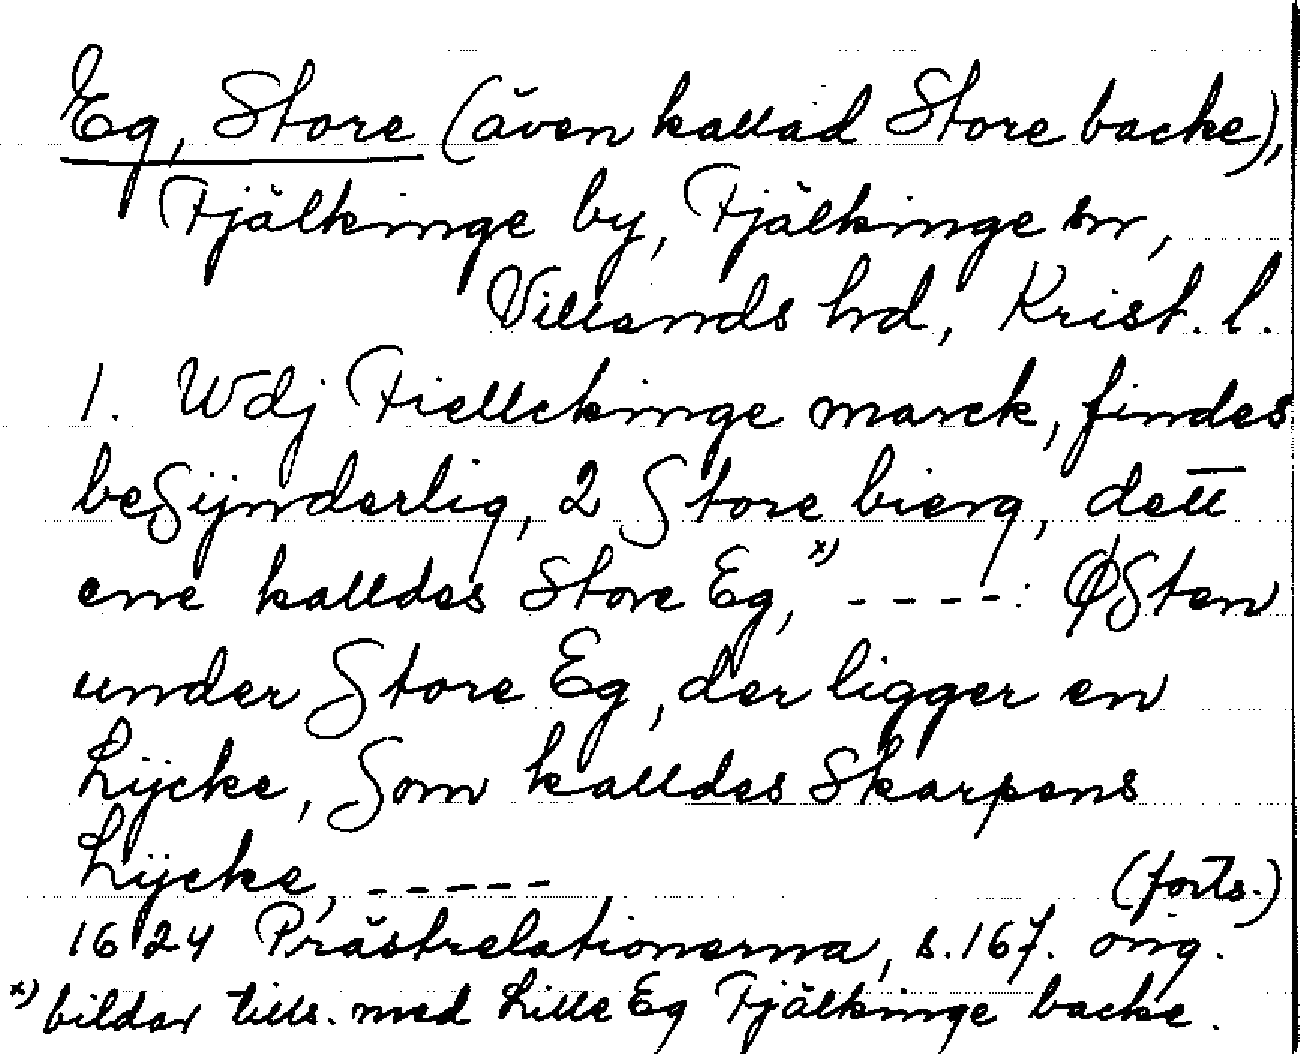 Eg, Store (även kallad Store backe),
Fjälkinge by, Fjälkinge sn,
Villands hrd, Krist. l.
1. Wdj Fiellckinge marck, findes
besijnderlig, 2 Store bierg, dett
ene kalldes Store Eg, x) ----: ØSten
under Store Eg, der ligger en
Lijcke, Som kalldes Skarpens
Lijcke, -----
(forts.)
1624 Prästrelationerna, s. 167. orig.
x) bildar tills. med Lille Eg Fjälkinge backe.